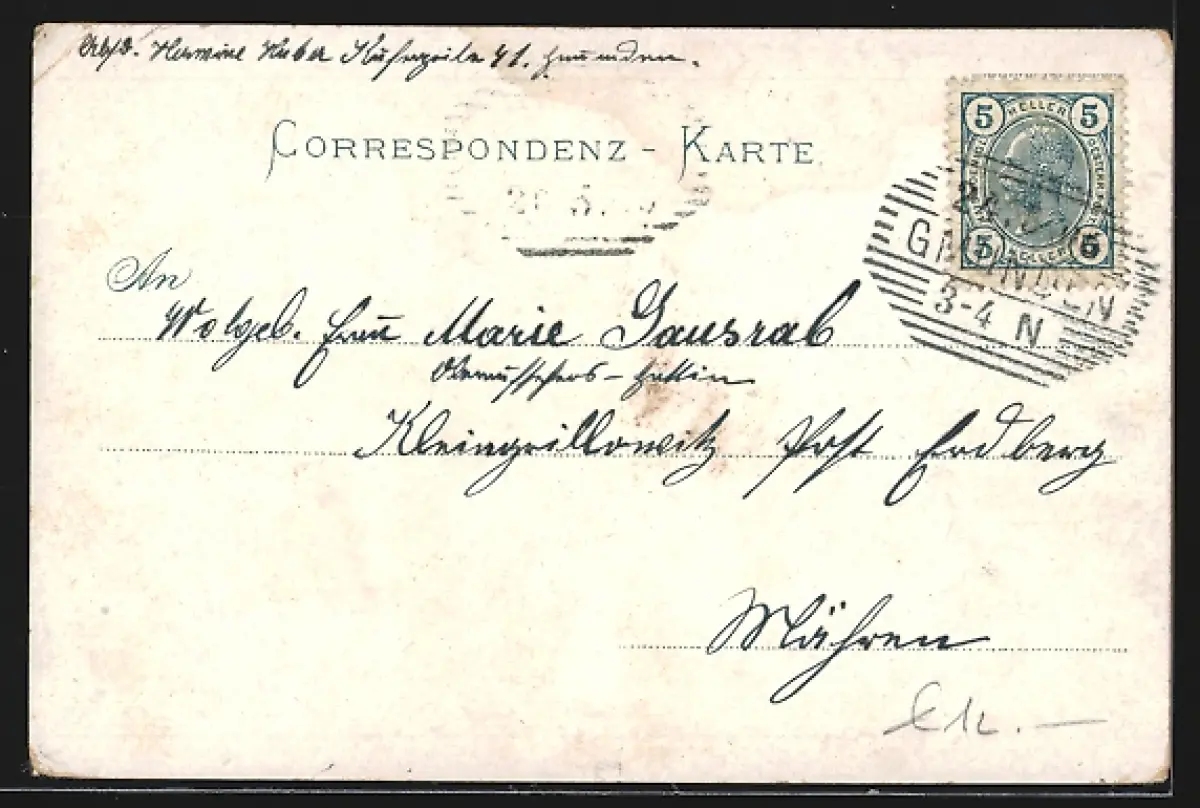 Hermine Huber Kuferzeile 41. Gmunden.
CORRESPONDENZ - KARTE
5 HELLER 5
5 HELLER 5
GMUNDEN
3-4 N
An
Wolgeb. Frau Marie Gausrab
Kleingrillowitz Post Erdberg
Mähren